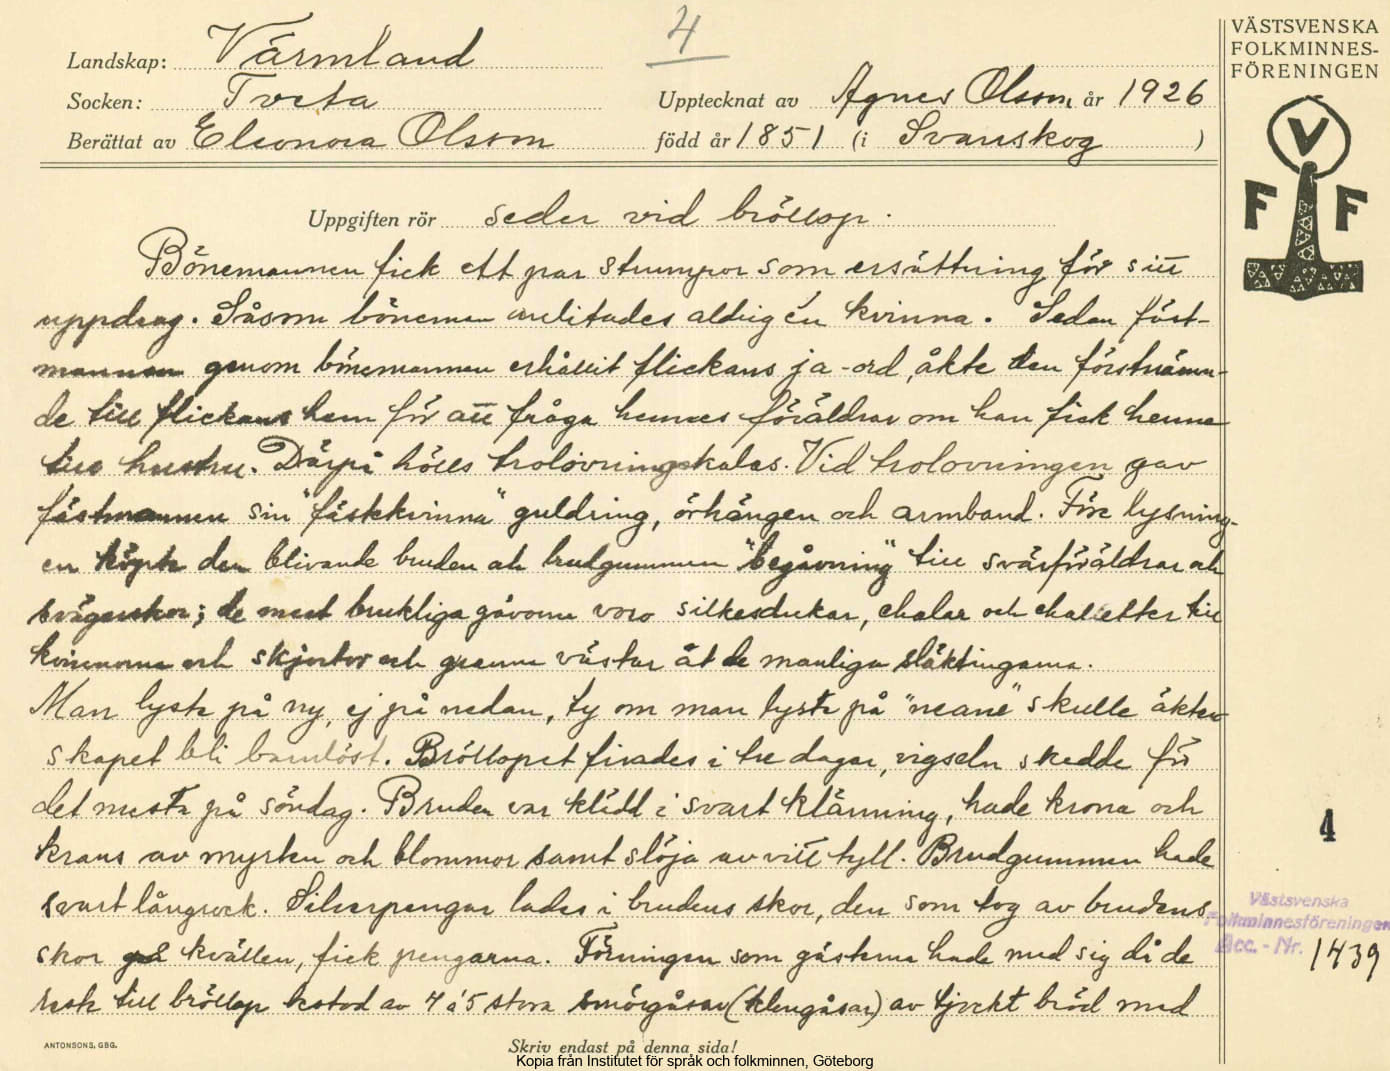 4
Landskap: Värmland
Socken: Tveta
Upptecknat av Agnes Olsson, år 1926
Berättat av Eleonora Olsson född år 1851 (i Svanskog )
VÄSTSVENSKA
FOLKMINNES-
FÖRENINGEN
V
F F
Uppgiften rör seder vid bröllop.
Bönemannen fick ett par strumpor som ersättning för sitt
uppdrag. Såsom bönemän anlitades aldrig én kvinna. Sedan fäst-
mannen genom bönemannen erhållit flickans ja-ord, åkte den förstnämn-
de till flickans hem för att fråga hennes föräldrar om han fick henne
till hustru. Därpå hölls trolovningskalas. Vid trolovningen gav
fästmannen sin "fästekvinna" guldring, örhängen och armband. Före lysning-
en köpte den blivande bruden och brudgummen "begåvning" till svärföräldrar och
svägerskor; de mest brukliga gåvorna voro silkesdukar, chalar och chaletter till
kvinnorna och skjortor och granna västar åt de manliga släktingarna.
Man lyste på ny, ej på nedan, ty om man lyste på "neane" skulle äkten-
skapet bli barnlöst. Bröllopet firades i tre dagar, vigseln skedde för
det mesta på söndag. Bruden var klädd i svart klänning, hade krona och
krans av myrten och blommor samt slöja av vitt tyll. Brudgummen hade
svart långrock. Silverpengar lades i brudens skor, den som tog av brudens
skor på kvällen, fick pengarna. Förningen som gästerna hade med sig då de
reste till bröllop bestod av 4 à 5 stora smörgåsar (klengåsar) av tjockt bröd med
4
Västsvenska
Folkminnesföreningen
Acc.-Nr. 1439
ANTONSONS, GBG.
Skriv endast på denna sida!
Kopia från Institutet för språk och folkminnen, Göteborg